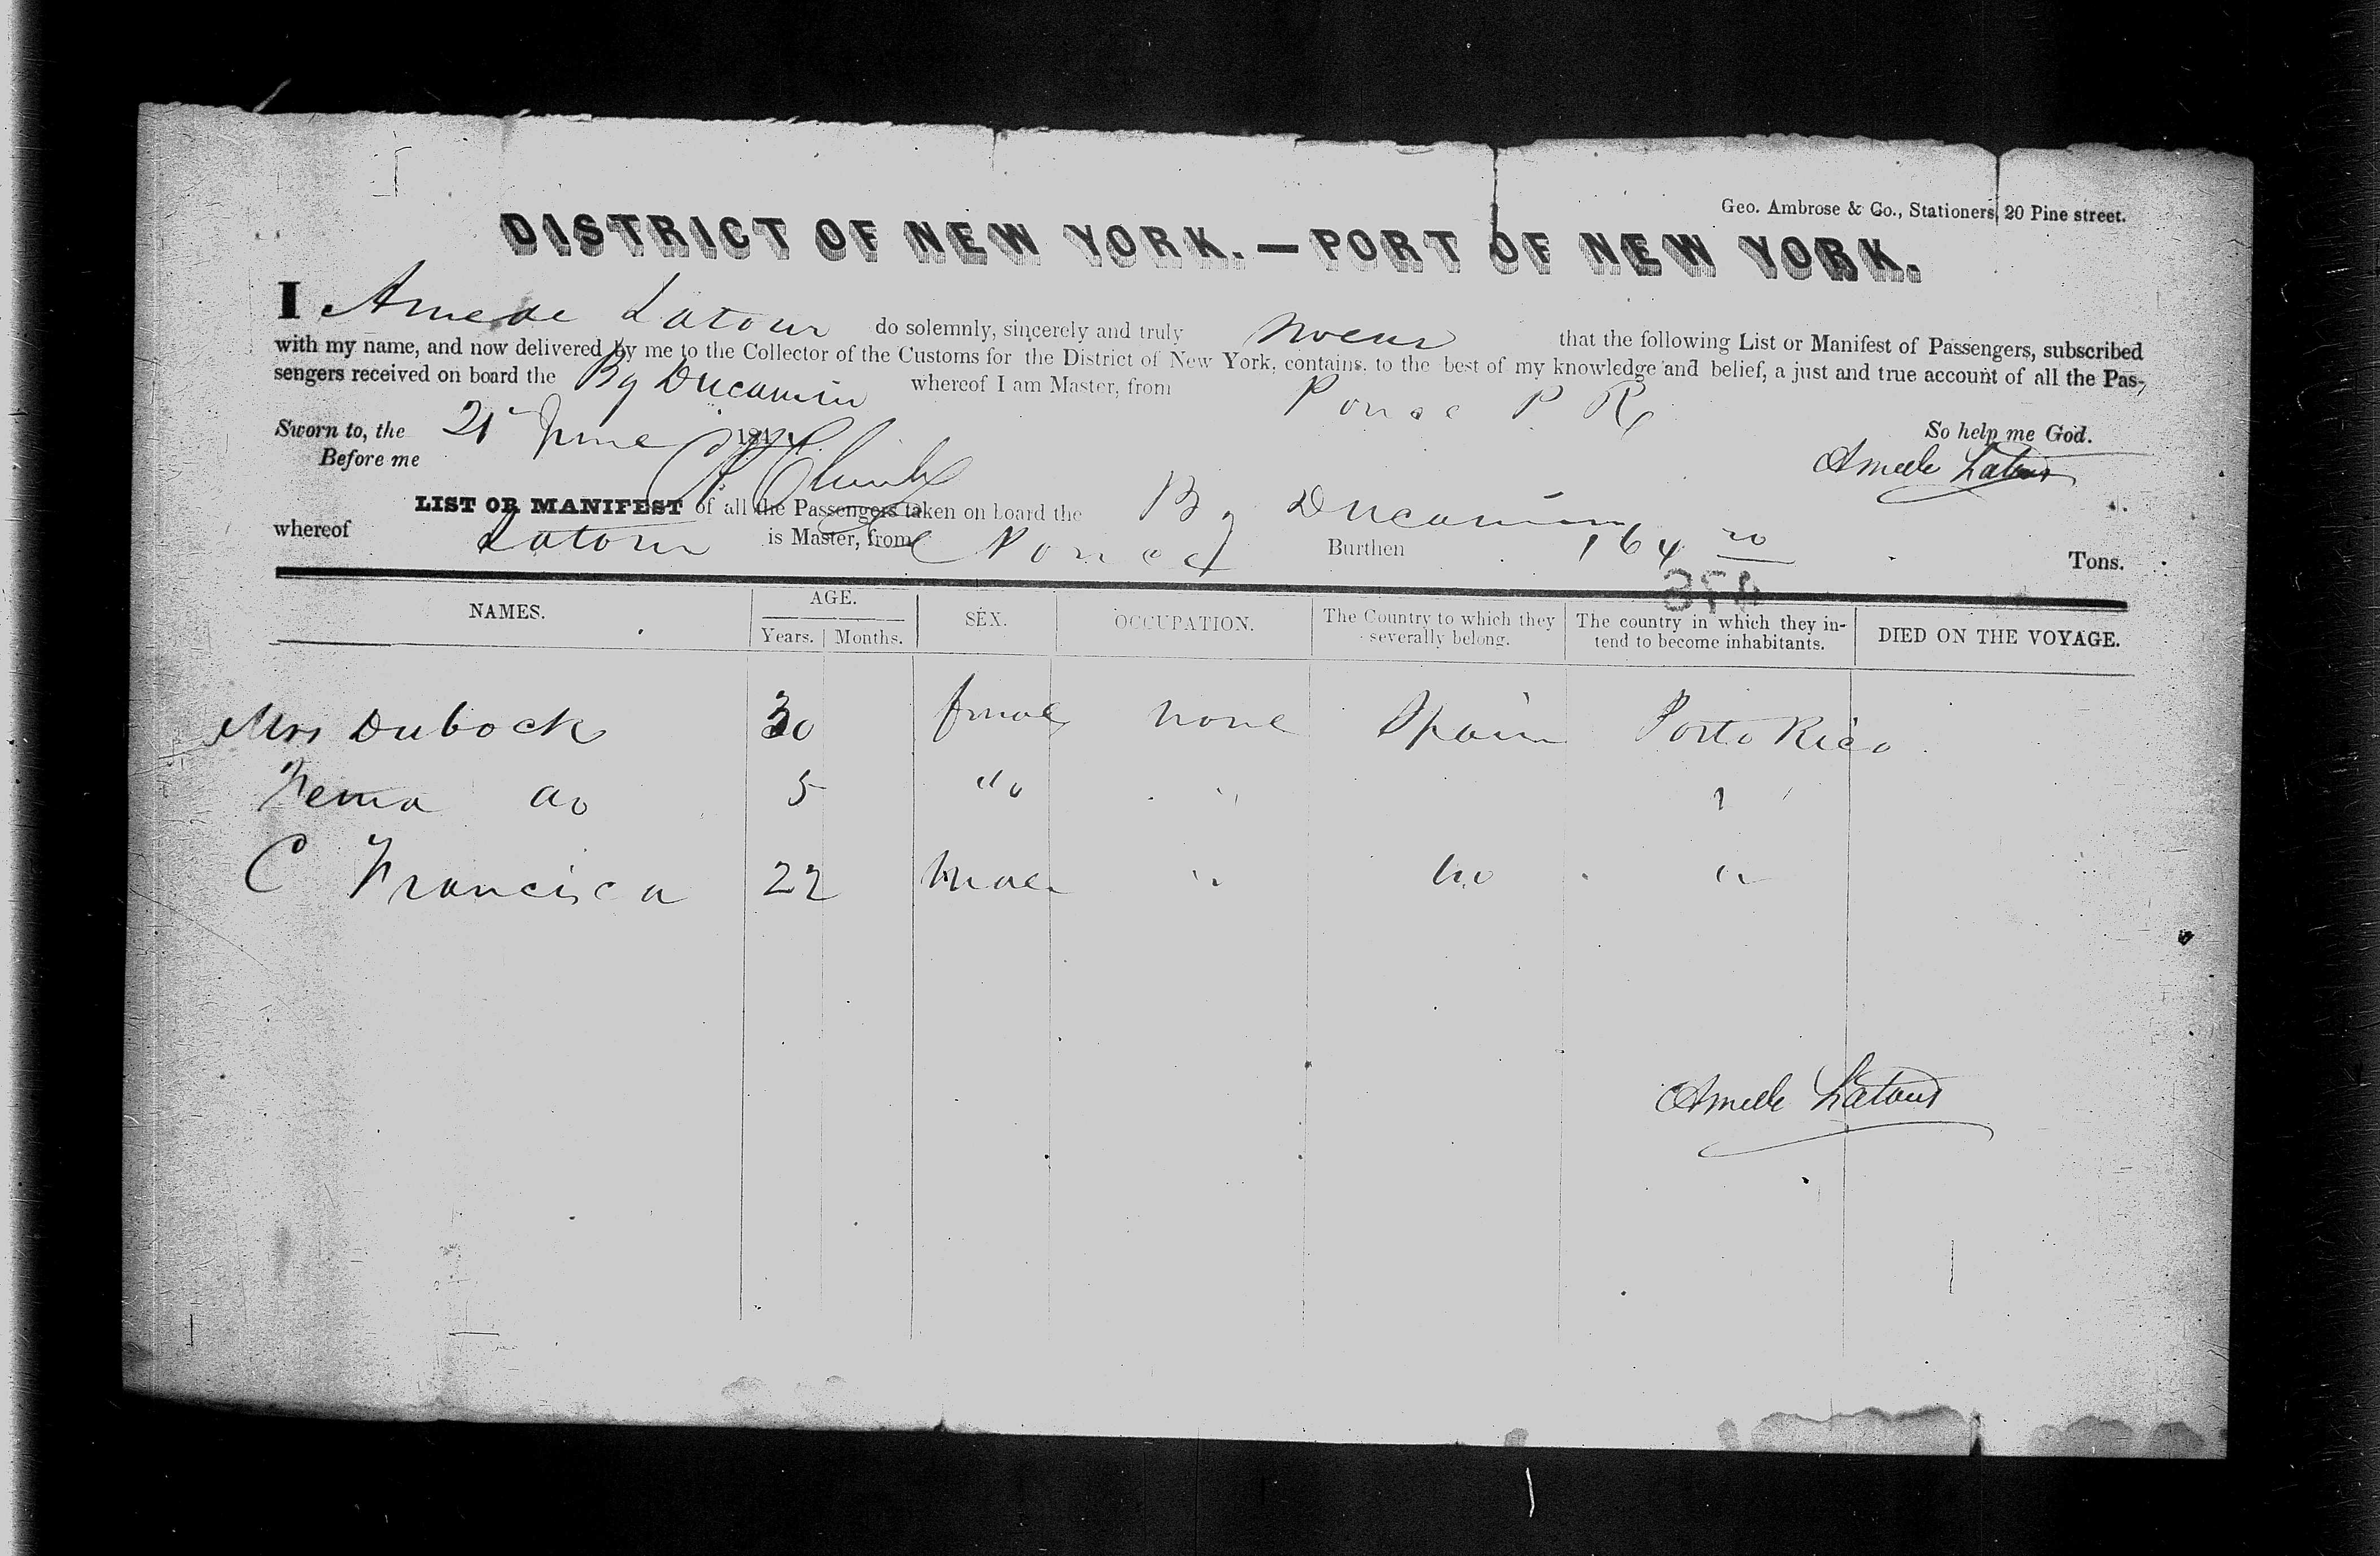 Geo. Ambrose & Co., Stationers, 20 Pine street.
DISTRICT OF NEW YORK.—PORT OF NEW YORK.
I Amede Latour do solemnly, sincerely and truly swear that the following List or Manifest of Passengers, subscribed
with my name, and now delivered by me to the Collector of the Customs for the District of New York, contains, to the best of my knowledge and belief, a just and true account of all the Pas-
sengers received on board the Bg Ducamin whereof I am Master, from Ponce P R
Sworn to, the 21 June 184 So help me God.
Before me Amede Latour
LIST OR MANIFEST of all the Passengers taken on board the Bg Ducamin
whereof Latour is Master, from Ponce Burthen 164 20 Tons.
NAMES. AGE. SEX. OCCUPATION. The Country to which they severally belong. The country in which they in- tend to become inhabitants. DIED ON THE VOYAGE.
Years. Months.
Mrs Dubock 30 female none Spain Porto Rico
do 5 " "
C Francisca 22 male " do "
Amede Latour